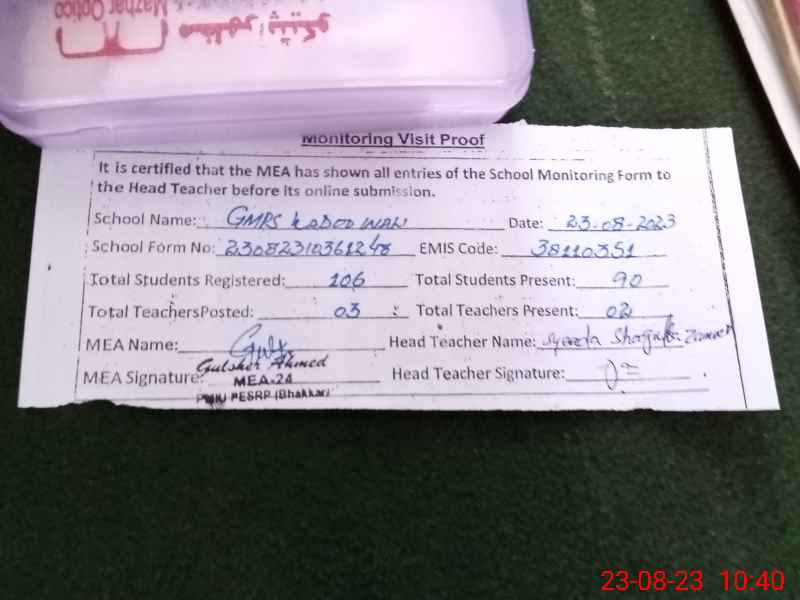 Mazhar Optico
Monitoring Visit Proof
It is certified that the MEA has shown all entries of the School Monitoring Form to
the Head Teacher before its online submission.
School Name: GMPS Date: 23-08-2023
School Form No: EMIS Code: 38110351
Total Students Registered: 106 Total Students Present: 90
Total TeachersPosted: 03 Total Teachers Present: 02
MEA Name: Head Teacher Name:
Gulsher Ahmed
MEA Signature: MEA-24 Head Teacher Signature:
PMIU PESRP (Bhakkar)
23-08-23 10:40